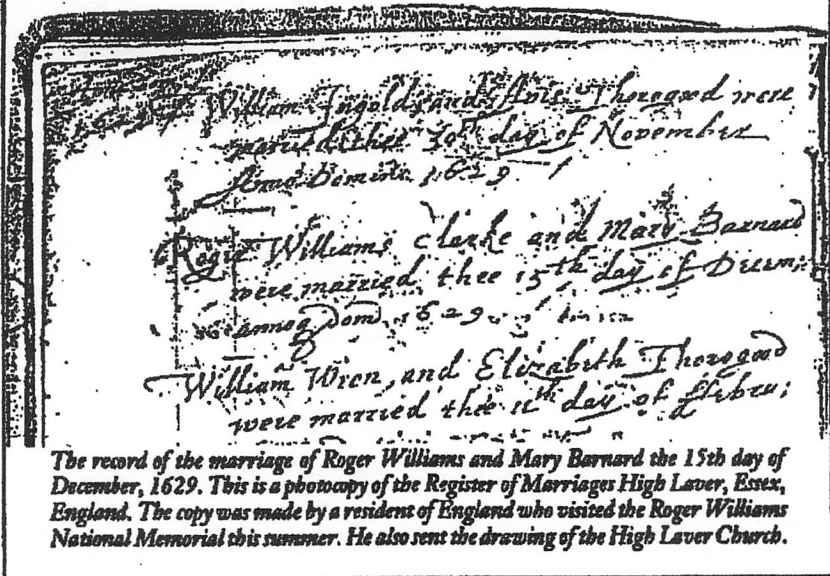 William Ingoldsy and Avis Thorogood were
married thee 30th day of November
Anno Domini 1629
Roger Williams Clarke and Mary Barnard
were married thee 15th day of Decem:
anno Dom 1629
William Wren, and Elizabeth Thorogood
were married thee 11th day of ffebru:
The record of the marriage of Roger Williams and Mary Barnard the 15th day of
December, 1629. This is a photocopy of the Register of Marriages High Laver, Essex,
England. The copy was made by a resident of England who visited the Roger Williams
National Memorial this summer. He also sent the drawing of the High Laver Church.